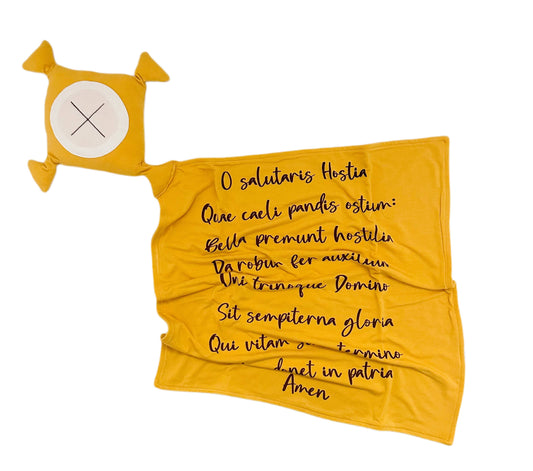 O salutaris Hostia
Quae caeli pandis ostium:
Bella premunt hostilia
Da robur fer auxilium
Uni trinoque Domino
Sit sempiterna gloria
Qui vitam termino
in patria
Amen